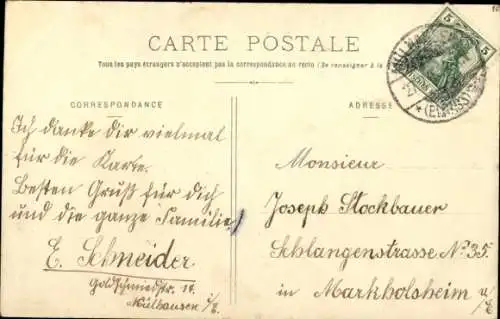 CARTE POSTALE
Tous les pays étrangers n'acceptent pas la correspondance au recto (Se renseigner à la
CORRESPONDANCE
Ich danke dir vielmal
für die Karte.
Besten Gruß für dich
und die ganze Familie!
E. Schneider
Goldschmiedstr. 10.
Mülhausen i/E.
ADRESSE
5
5
(ELSASS)
Monsieur
Joseph Stockbauer
Schlangenstrasse No 35.
in Markholsheim i/E